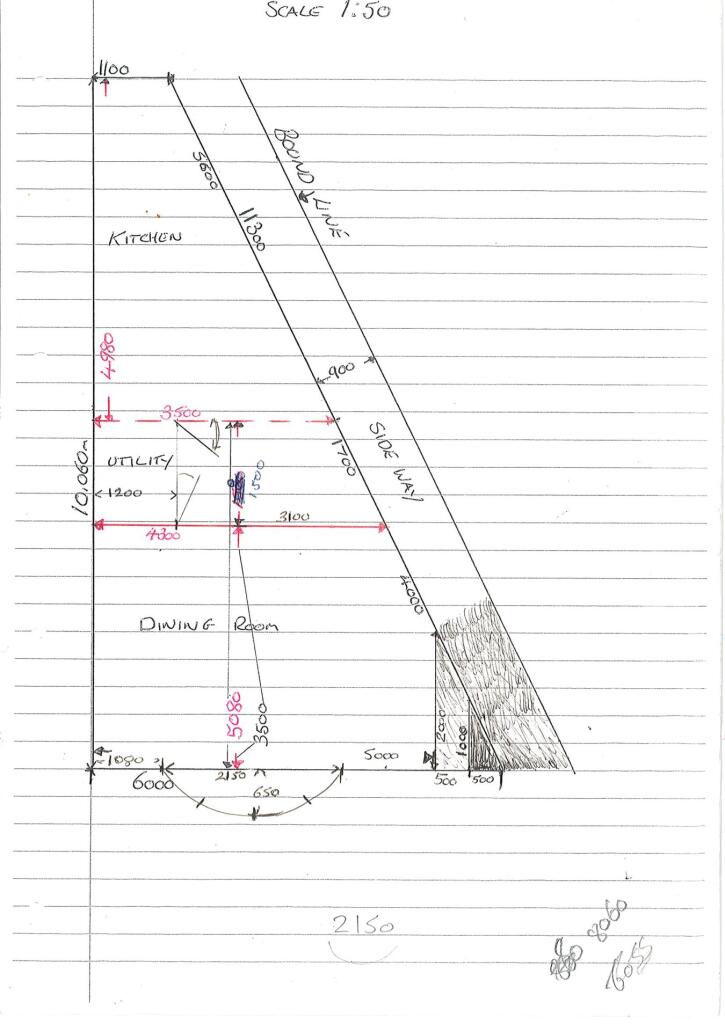 SCALE 1:50
1100
5600
BOUND LINE
11300
KITCHEN
4980
900
3500
1700
SIDE WAY
UTILITY
10,060m
1500
1200
4300
3100
4000
DINING ROOM
5080
3500
2000
1000
1080
6000
2150
5000
500
500
650
2150
8060
6055